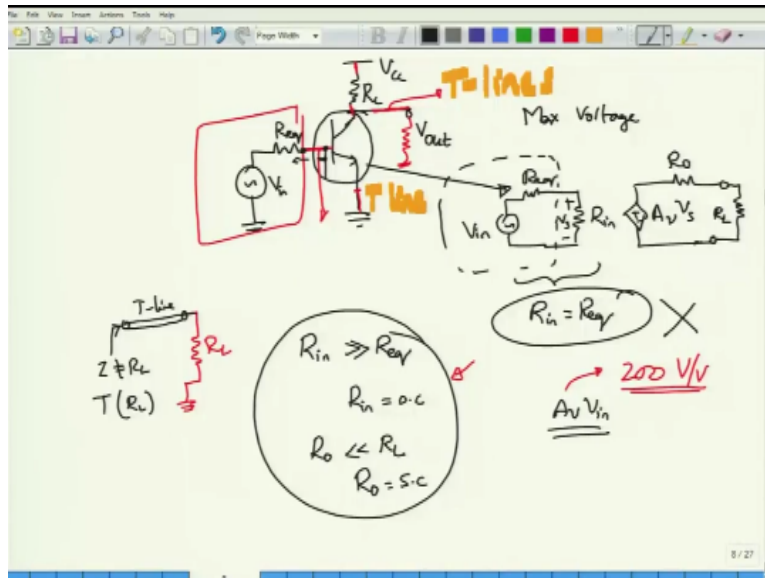 File Edit View Insert Actions Tools Help
Page Width
B I
Vcc
RL
T-lines
Max Voltage
Req
Vout
Vin
T line
Req
Vin
+
Vs
-
Rin
Ro
AvVs
RL
Rin = Req
T-line
RL
Z ≠ RL
T(RL)
Rin >> Req
Rin = o.c
Ro << RL
Ro = s.c
200 V/V
AvVin
8 / 27